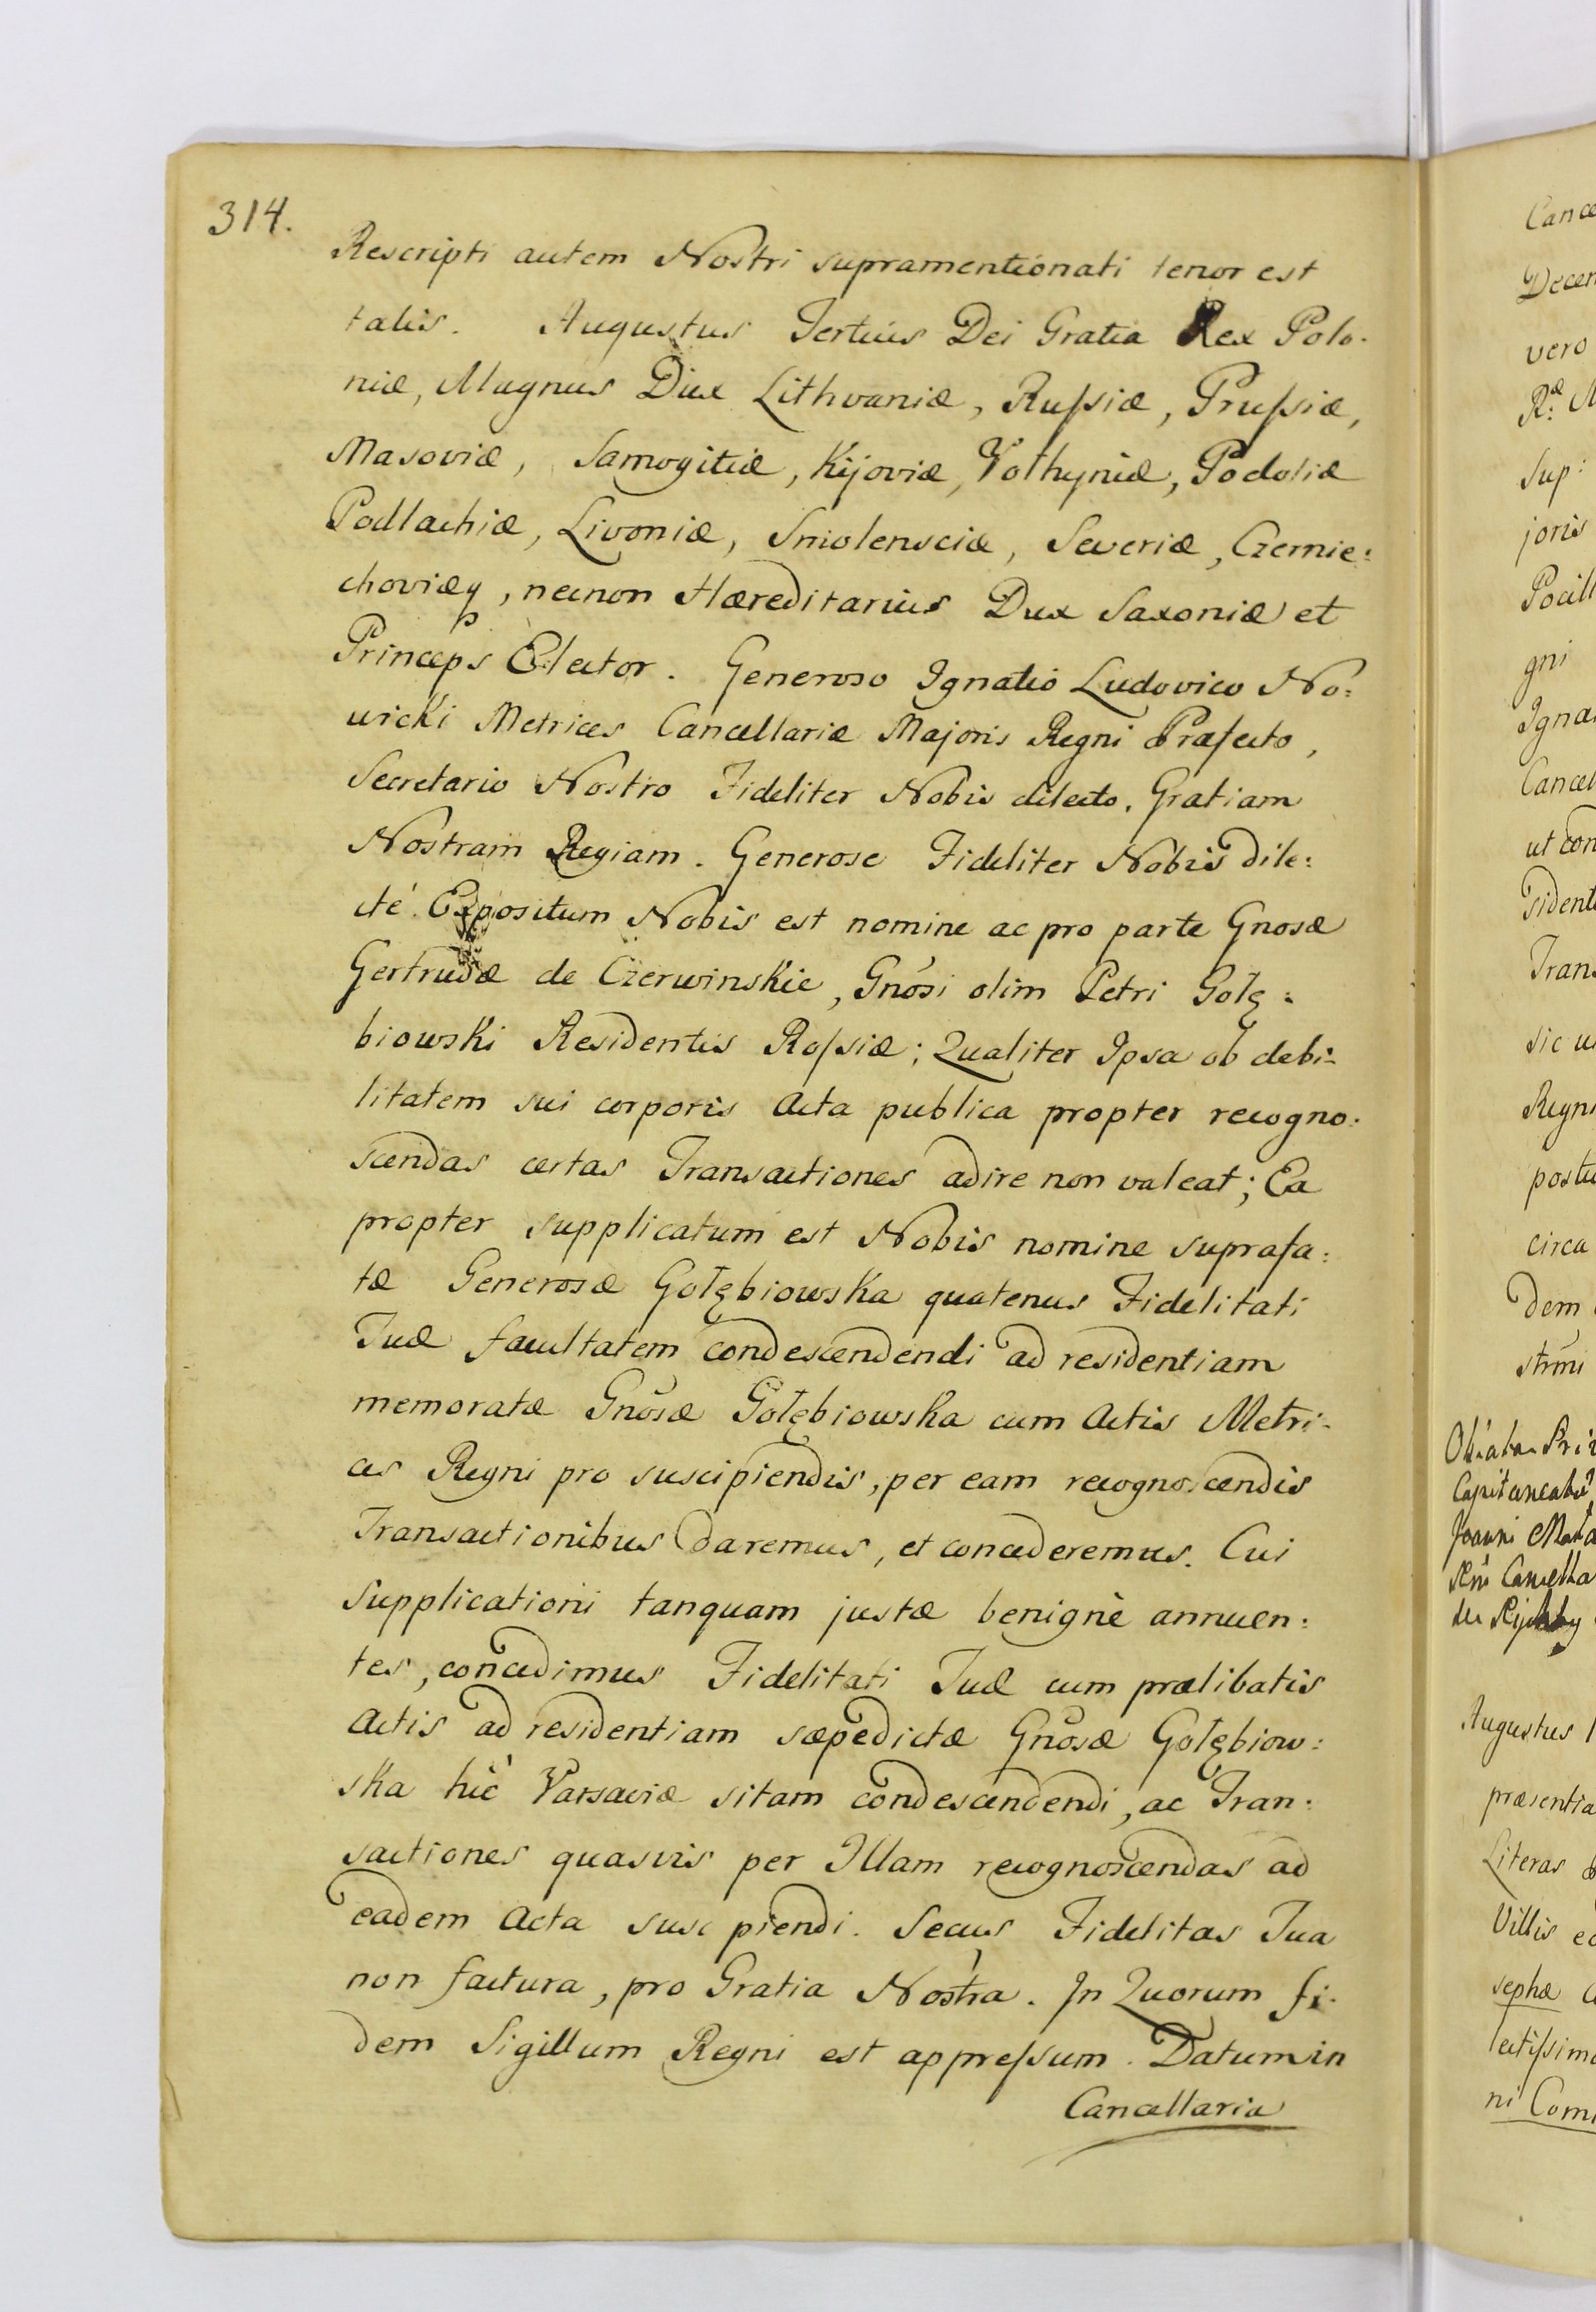 314.
Rescripti autem Nostri supramentionati tenor est
talis. Augustus Tertius Dei Gratia Rex Polo.
niæ, Magnus Dux Lithvaniæ, Rufsiæ, Prufsiæ,
Masoviæ, Samogitiæ, Kijoviæ, Volhyniæ, Podoliæ
Podlachiæ, Livoniæ, Smolensciæ, Severiæ, Czernie:
choviæq, necnon Hæreditarius Dux Saxoniæ et
Princeps Elector. Generoso Ignatio Ludovico No:
wicki Metrices Cancellariæ Majoris Regni Præfecto,
Secretario Nostro Fideliter Nobis dilecto, Gratiam
Nostram Regiam. Generose Fideliter Nobis dile:
cté. Expositum Nobis est nomine ac pro parte Gnosæ
Gertrudæ de Czerwinskie, Gnósi olim Petri Golę:
biowski Residentis Rofsiæ; Qualiter Ipsa ob debi:
litatem sui corporis Acta publica propter recogno:
scendas certas Transactiones adire non valeat; Ea
propter supplicatum est Nobis nomine suprafa:
tæ Generosæ Gołębiowska quatenus Fidelitati
Tuæ facultatem condescendendi ad residentiam
memoratæ Gnosæ Gołębiowska cum Actis Metri:
ces Regni pro suscipiendis, per eam recognoscendis
Transactionibus daremus, et concederemus. Cui
supplicationi tanquam justæ benignè annuen:
tes, concedimus Fidelitati Tuæ cum prælibatis
Actis ad residentiam sæpedictæ Gnosæ Gołębiow:
ska hic Varsaviæ sitam condescendendi, ac Tran:
sactiones quasvis per Illam recognoscendas ad
eadem Acta susc piendi. Secus Fidelitas Tua
non factura, pro Gratia Nostra. In Quorum fi.
dem Sigillum Regni est apprefsum. Datum in
Cancellaria
Cance
Decer
vero
Sup:
joris
Pocill
gni
Igna
Cancel
ut con
sident
Trans
sic u
Regni
postu
circa
dem
strmi
Oblata Pri
Joanni
Augustus
præsentia
Literas
Villis
sephæ
lectifsim
ni Com